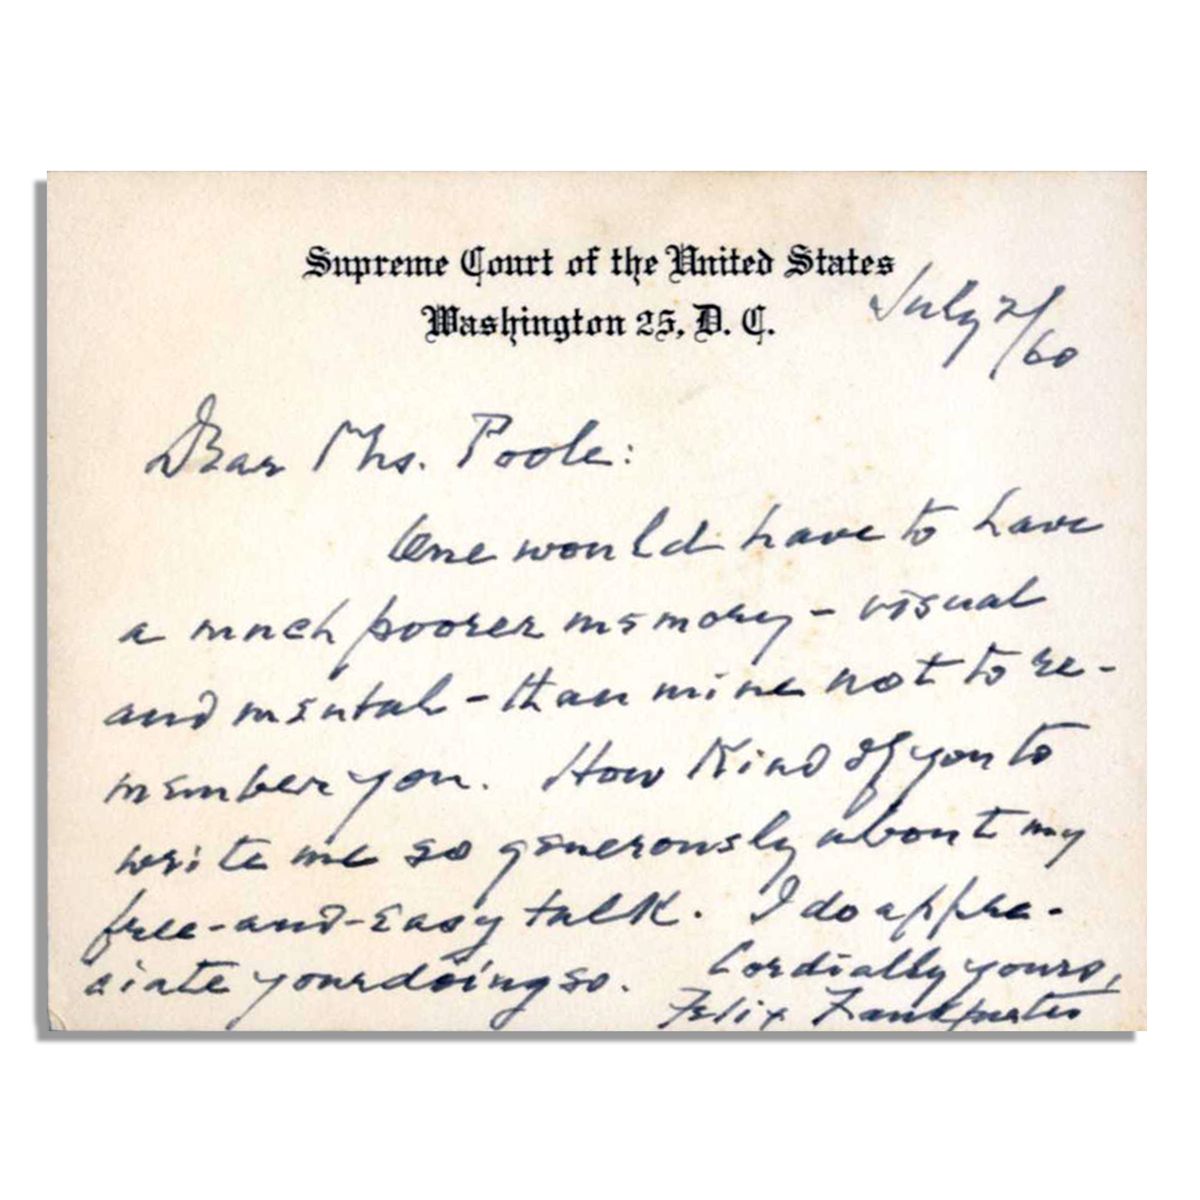 Supreme Court of the United States
Washington 25, D. C.
July 2/60
Dear Mrs. Poole:
One would have to have
a much poorer memory - visual
and mental - than mine not to re-
member you. How kind of you to
write me so generously about my
free-and-easy talk. I do appre-
ciate your doing so. Cordially yours,
Felix Frankfurter